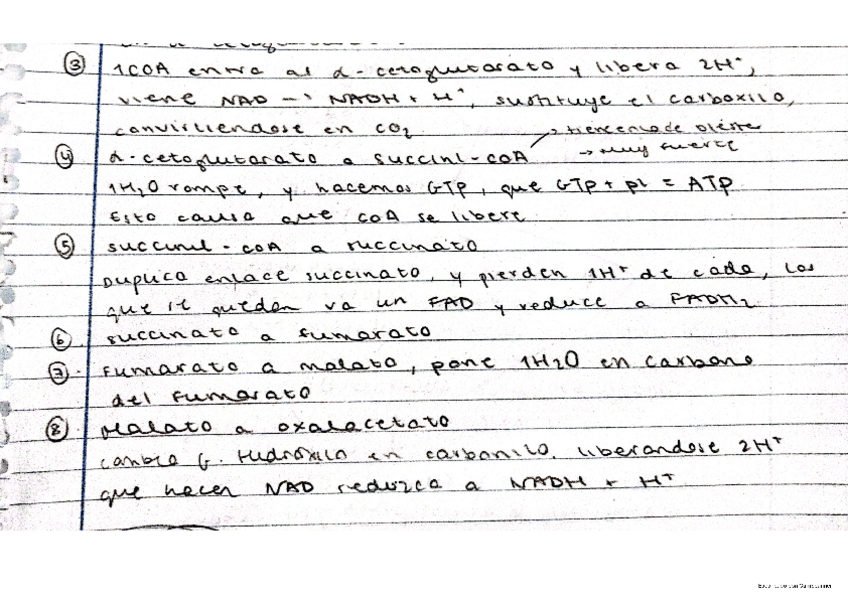 ③ 1COA entra al α-cetoglutarato y libera 2H⁺,
viene NAD → NADH + H⁺, sustituye el carboxilo,
convirtiendose en CO₂
④ α-cetoglutarato a succinl-COA
→ muy fuerte
1H₂O rompe, y hacemos GTP, que GTP + pi = ATP
Esto causa que COA se libere
⑤ succinil-COA a succinato
Duplica enlace succinato, y pierden 1H⁺ de cada, los
que se quedan va un FAD y reduce a FADH₂
⑥ succinato a fumarato
⑦ Fumarato a malato, pone 1H₂O en carbono
del Fumarato
⑧ Malato a oxalacetato
cambia G. Hidroxilo en carbonilo, liberandose 2H⁺
que hacen NAD reduzca a NADH + H⁺